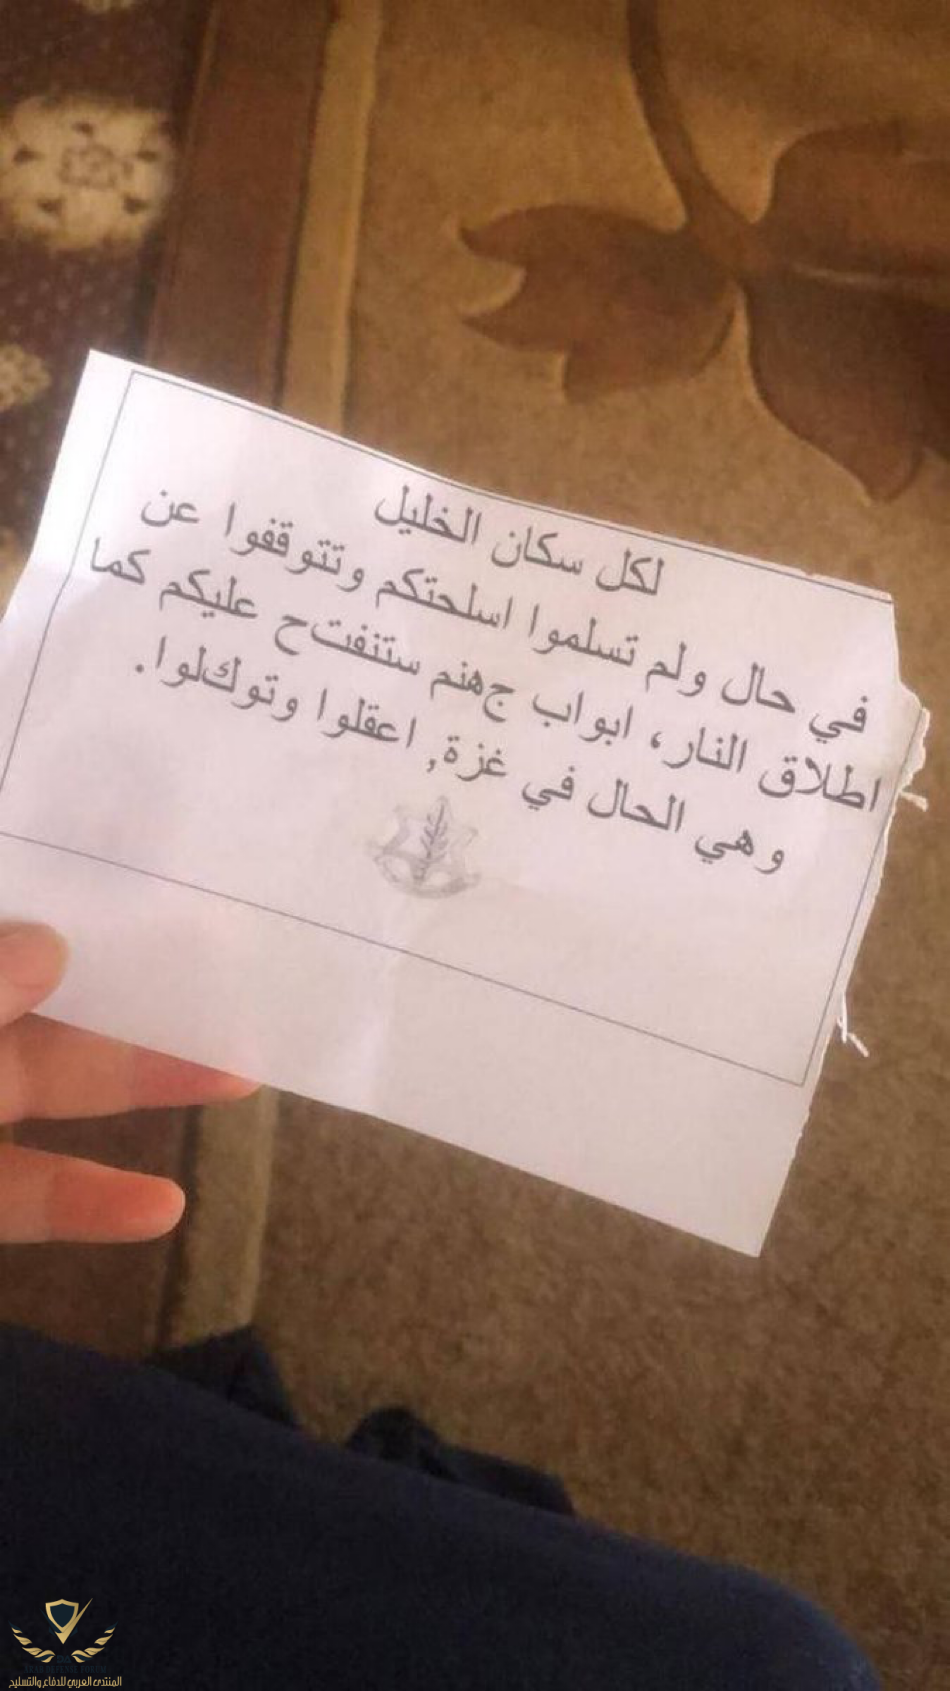 لكل سكان الخليل
في حال ولم تسلموا اسلحتكم وتتوقفوا عن
اطلاق النار، ابواب جهنم ستنفتح عليكم كما
وهي الحال في غزة, اعقلوا وتوكلوا.
المنتدى العربي للدفاع والتسليح